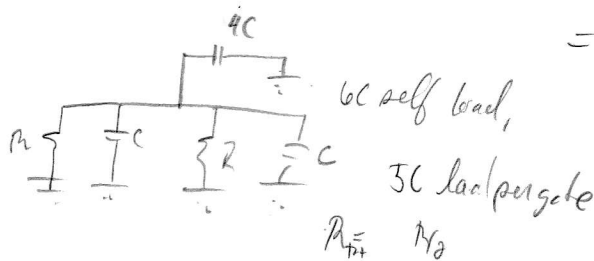 4C
=
6C self load,
R C R C
5C load per gate
R = R/2